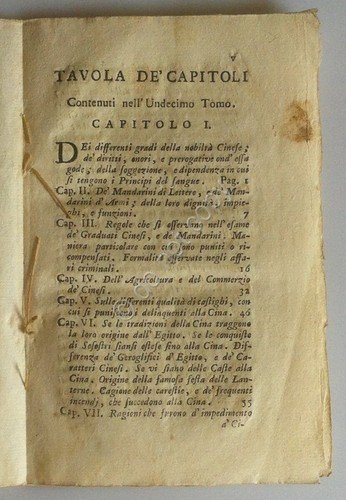 v
TAVOLA DE' CAPITOLI
Contenuti nell'Undecimo Tomo.
CAPITOLO I.
DEi differenti gradi della nobiltà Cinese;
de' diritti, onori, e prerogative ond' essa
gode; della soggezione, e dipendenza in cui
si tengono i Principi del sangue. Pag. 1
Cap. II. De' Mandarini di Lettere, e de' Man-
darini d' Armi; della loro dignità, impie-
ghi, e funzioni. 7
Cap. III. Regole che si osservano nell' esame
de' Graduati Cinesi, e de' Mandarini. Ma-
niera particolare con cui sono puniti o ri-
compensati. Formalità osservate negli affa-
ri criminali. 16
Cap. IV. Dell' Agricoltura e del Commerzio
de' Cinesi. 32
Cap. V. Sulle differenti qualità di castighi, con
cui si puniscono i delinquenti alla Cina. 46
Cap. VI. Se le tradizioni della Cina traggono
la loro origine dall' Egitto. Se le conquiste
di Sesostri siansi estese sino alla Cina. Dif-
ferenza de' Geroglifici d' Egitto, e de' Ca-
ratteri Cinesi. Se vi siano delle Caste alla
Cina. Origine della famosa festa delle Lan-
terne. Cagione delle carestie, e de' frequenti
incendj, che succedono alla Cina. 55
Cap. VII. Ragioni che furono d' impedimento
a' Ci-